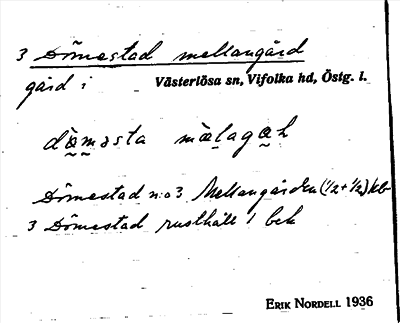 3 Dömestad mellangård
gård i Västerlösa sn, Vifolka hd, Östg. l.
dǜmǝsta mälagaḥ
Dömestad n:o 3 Mellangården (1/2+1/2) kb
3 Dömestad rusthåll 1 bek
ERIK NORDELL 1936